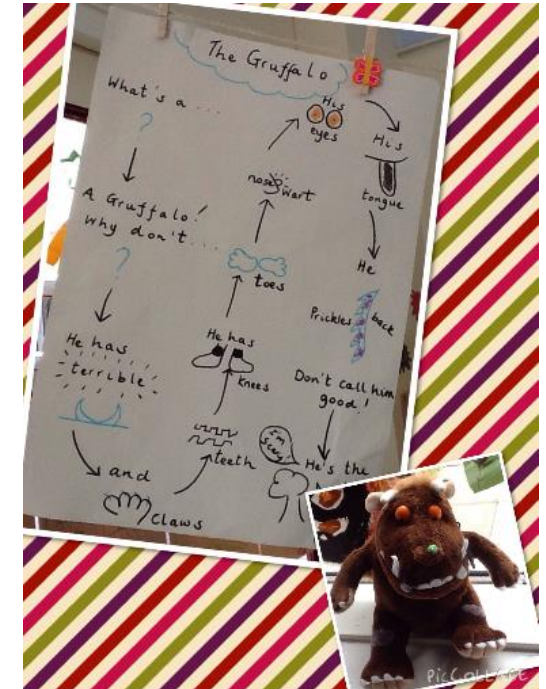 The Gruffalo
What's a ...
?
A Gruffalo!
Why don't ...
?
He has
terrible
and
claws
teeth
He has
knees
toes
nose wart
His
eyes
His
tongue
He
Prickles back
Don't call him
good!
I'm
scary!
He's the
PicCOLLAGE